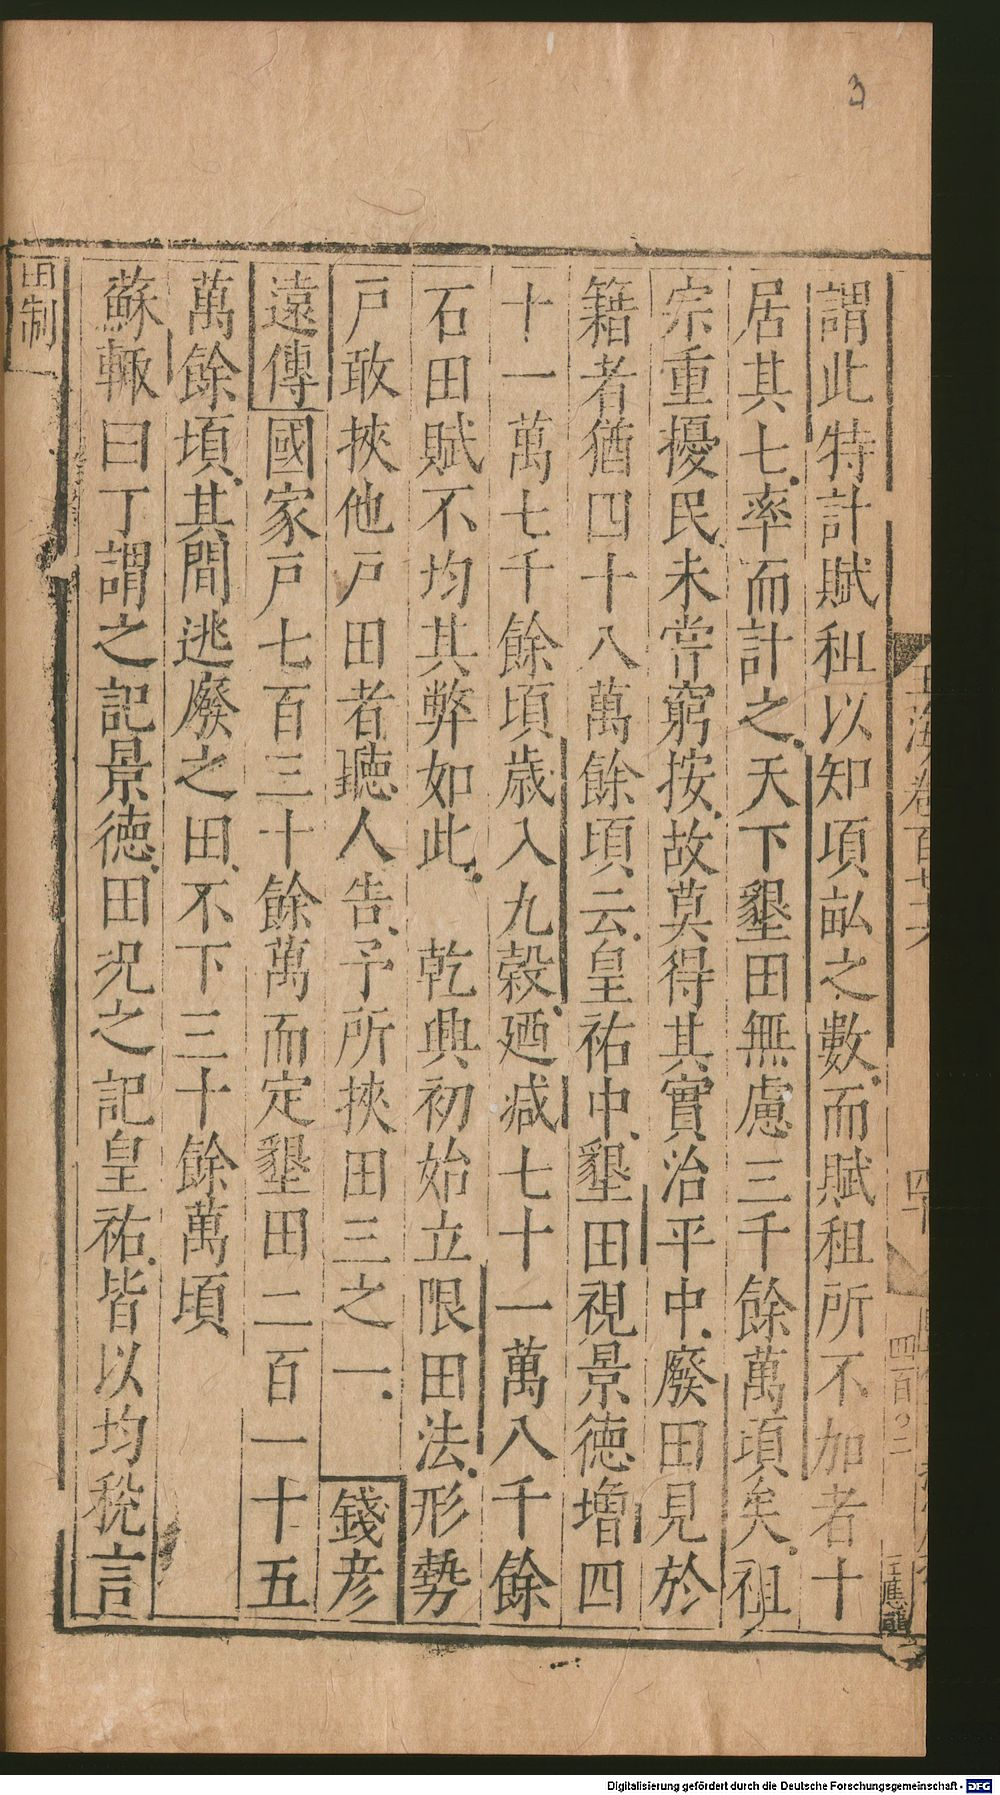 3
謂此特計賦租以知頃畝之數而賦租所不加者十
居其七率而計之天下墾田無慮三千餘萬頃矣祖
宗重擾民未嘗窮按故莫得其實治平中廢田見於
籍者猶四十八萬餘頃云皇祐中墾田視景德增四
十一萬七千餘頃歲入九穀廼減七十一萬八千餘
石田賦不均其弊如此 乾興初始立限田法形勢
戶敢挾他戶田者聽人告予所挾田三之一 錢彥
遠傳國家戶七百三十餘萬而定墾田二百一十五
萬餘頃其間逃廢之田不下三十餘萬頃
蘇轍曰丁謂之記景德田況之記皇祐皆以均稅言
田制
玉海卷百七十六
四百〇二
Digitalisierung gefördert durch die Deutsche Forschungsgemeinschaft - DFG